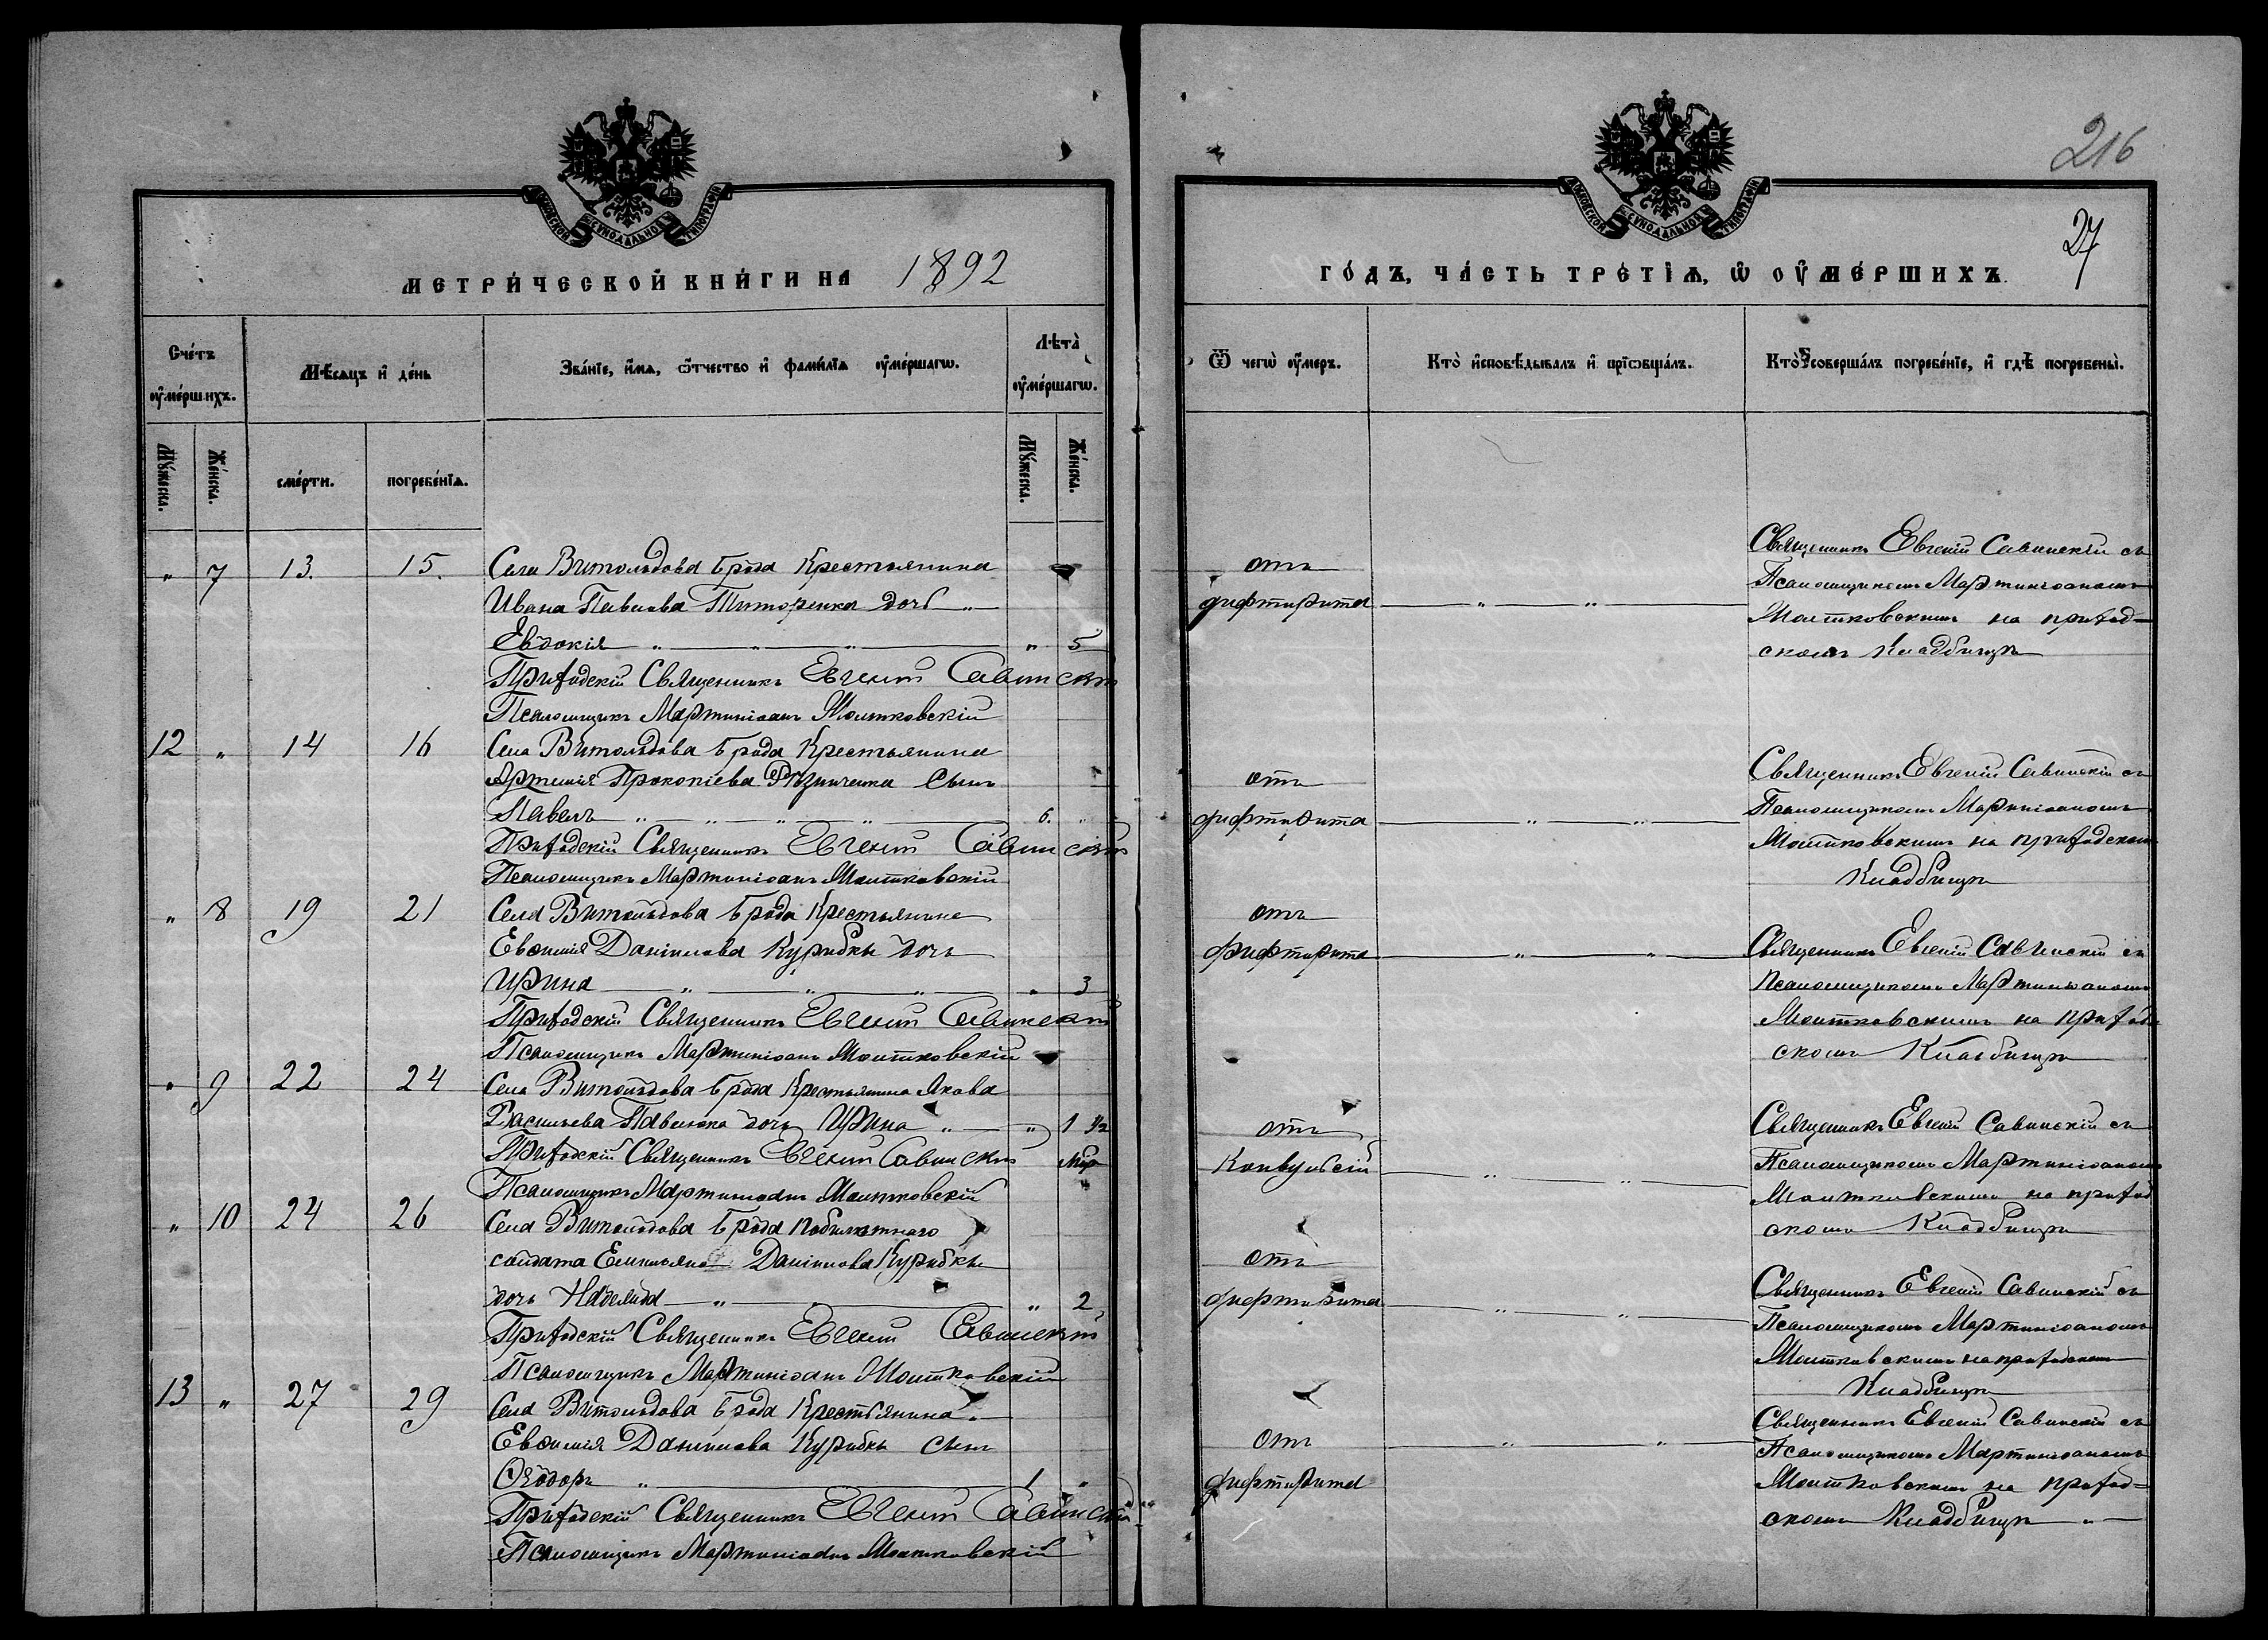 216
27
МЕТРИ́ЧЕСКОЙ КНИ́ГИ НА 1892
ГО́ДЪ, ЧА́СТЬ ТРЕ́ТІѦ, Ѡ ОУ҆МЕ́РШИХЪ.
Сче́тъ оу҆ме́ршихъ.
Мѣ́сяцъ и҆ де́нь
Зва́нїе, и҆́мѧ, ѻ҆́тчество и҆ фами́лїѧ оу҆ме́ршагѡ.
Лѣ́та̀ оу҆ме́ршагѡ.
Ѿ чегѡ̀ оу҆́меръ.
Кто̀ и҆сповѣ́дывалъ и҆ прїѡбща́лъ.
Кто̀ соверша́лъ погребе́нїе, и҆ гдѣ̀ погребены̀.
Мꙋ́жеска.
Же́нска.
сме́рти.
погребе́нїѧ.
Мꙋ́жеска.
Же́нска.
" 7 13. 15. Села Витольдова Брода Крестьянина
Ивана Павлова Титоренка дочь "
Евдокія " " " " 5
Приходскій Священникъ Евгеній Савинскій
Псаломщикъ Мартиніанъ Моитковскій
отъ
дифтирита " "
Священникъ Евгеній Савинскій съ
Псаломщикомъ Мартиніаномъ
Моитковскимъ на приход-
скомъ Кладбищѣ
12 " 14 16 Села Витольдова Брода Крестьянина
Артемія Прокопіева Зинченка Сынъ
Павелъ " " " " 6. "
Приходскій Священникъ Евгеній Савинскій
Псаломщикъ Мартиніанъ Моитковскій
отъ
дифтирита " "
Священникъ Евгеній Савинскій съ
Псаломщикомъ Мартиніаномъ
Моитковскимъ на приходскомъ
Кладбищѣ
" 8 19 21 Села Витольдова Брода Крестьянина
Евѳимія Даніилова Курибки дочь
Ирина " " " " 3
Приходскій Священникъ Евгеній Савинскій
Псаломщикъ Мартиніанъ Моитковскій
отъ
дифтирита " "
Священникъ Евгеній Савинскій съ
Псаломщикомъ Мартиніаномъ
Моитковскимъ на приход
скомъ Кладбищѣ
" 9 22 24 Села Витольдова Брода Крестьянина Якова
Васильева Павлюка дочь Ирина " " 1 1/2
Приходскій Священникъ Евгеній Савинскій
Псаломщикъ Мартиніанъ Моитковскій
отъ
Конвульсій " "
Священникъ Евгеній Савинскій съ
Псаломщикомъ Мартиніаномъ
Моитковскимъ на приход
скомъ Кладбищѣ
" 10 24 26 Села Витольдова Брода побилетнаго
солдата Емильяна Даніилова Курибки
дочь Надежда " " 2
Приходскій Священникъ Евгеній Савинскій
Псаломщикъ Мартиніанъ Моитковскій
отъ
дифтирита " "
Священникъ Евгеній Савинскій съ
Псаломщикомъ Мартиніаномъ
Моитковскимъ на приходскомъ
Кладбищѣ
13 " 27 29 Села Витольдова Брода Крестьянина "
Евѳимія Даніилова Курибки сынъ
Ѳеодоръ " 1 "
Приходскій Священникъ Евгеній Савинскій
Псаломщикъ Мартиніанъ Моитковскій
отъ " "
дифтирита
Священникъ Евгеній Савинскій съ
Псаломщикомъ Мартиніаномъ
Моитковскимъ на приход-
скомъ Кладбищѣ "